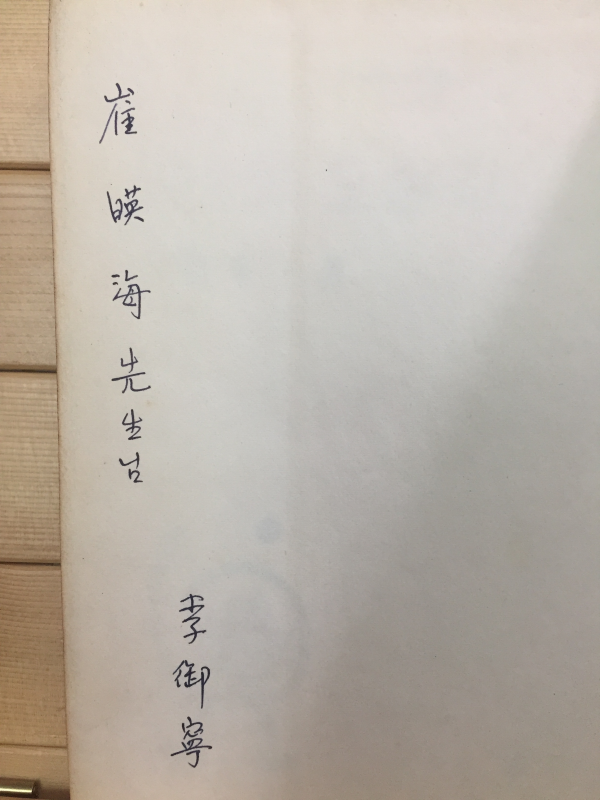 崔暎海先生
李御寧